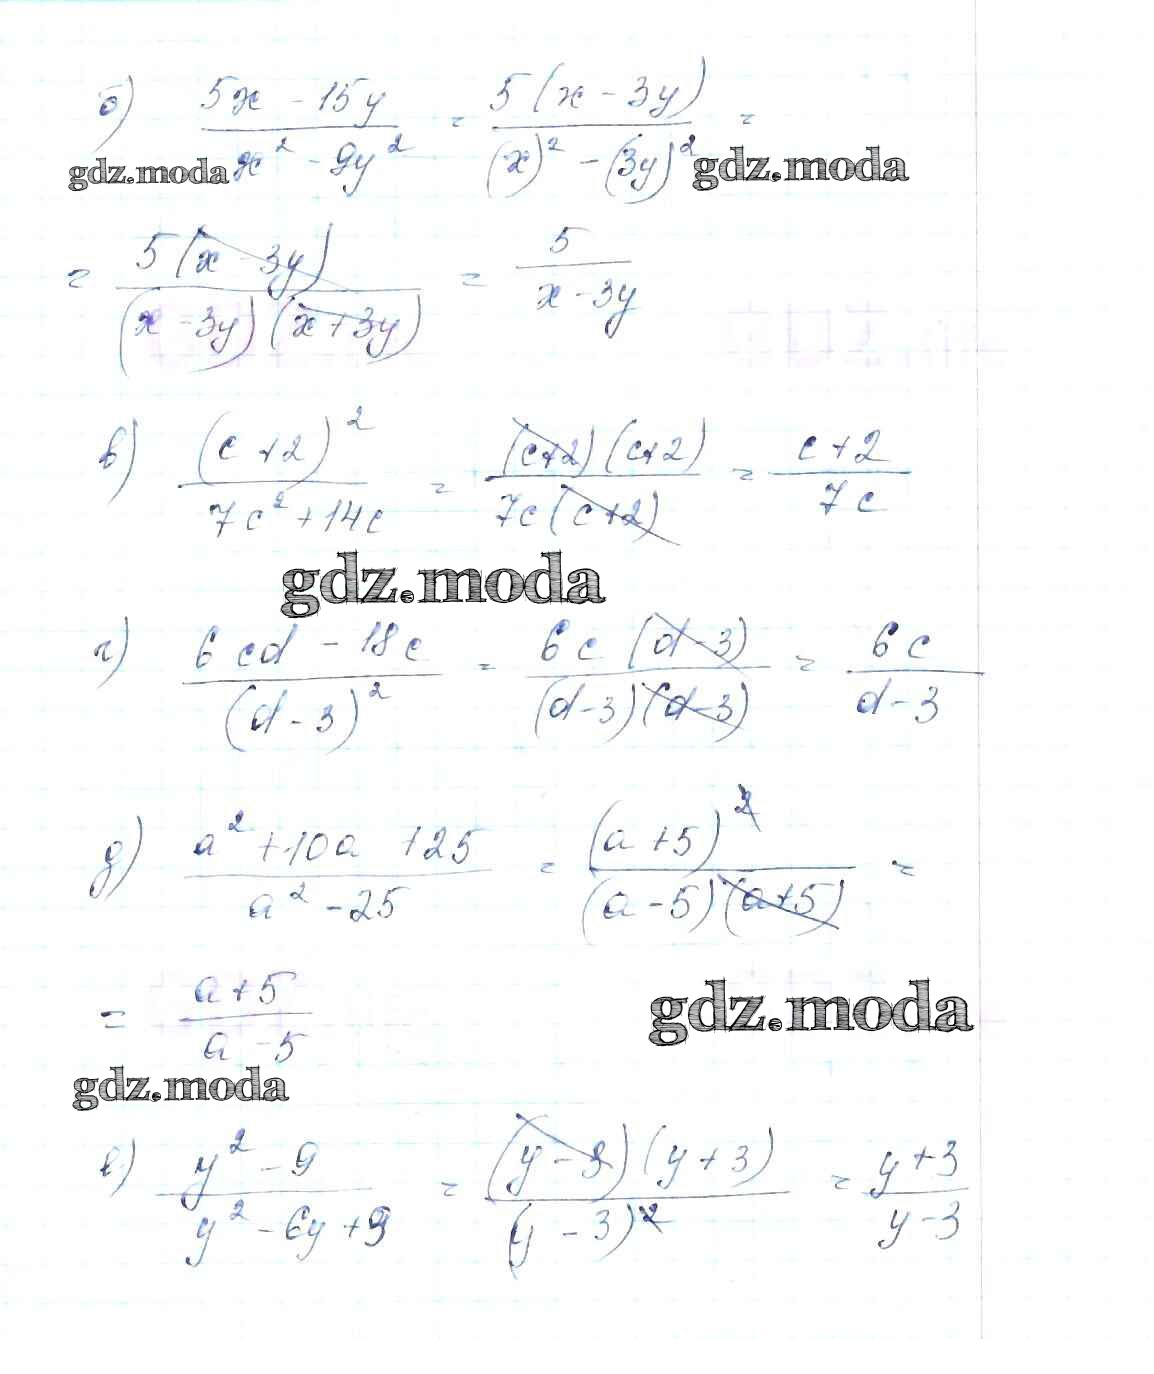 б) (5x - 15y)/(x² - 9y²) = (5(x - 3y))/((x)² - (3y)²) =
gdz.moda gdz.moda
= (5(x - 3y))/((x - 3y)(x + 3y)) = 5/(x - 3y)
в) (c + 2)²/(7c² + 14c) = ((c+2)(c+2))/(7c(c+2)) = (c+2)/(7c)
gdz.moda
г) (6cd - 18c)/(d - 3)² = (6c(d - 3))/((d-3)(d-3)) = (6c)/(d-3)
д) (a² + 10a + 25)/(a² - 25) = (a + 5)²/((a - 5)(a+5)) =
= (a+5)/(a-5)
gdz.moda
gdz.moda
е) (y² - 9)/(y² - 6y + 9) = ((y - 3)(y + 3))/(y - 3)² = (y+3)/(y-3)